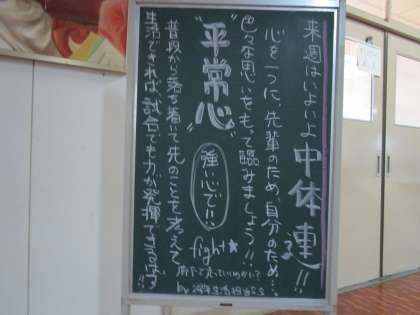 来週はいよいよ中体連!!
心を一つに、先輩のため、自分のため…
色々な思いをもって臨みましょう!!
"平常心"
強い心で!!
普段から落ち着いて先のことを考えて
生活できれば、試合でも力が発揮できるはず!!
fight★
廊下で走っていいのかな?